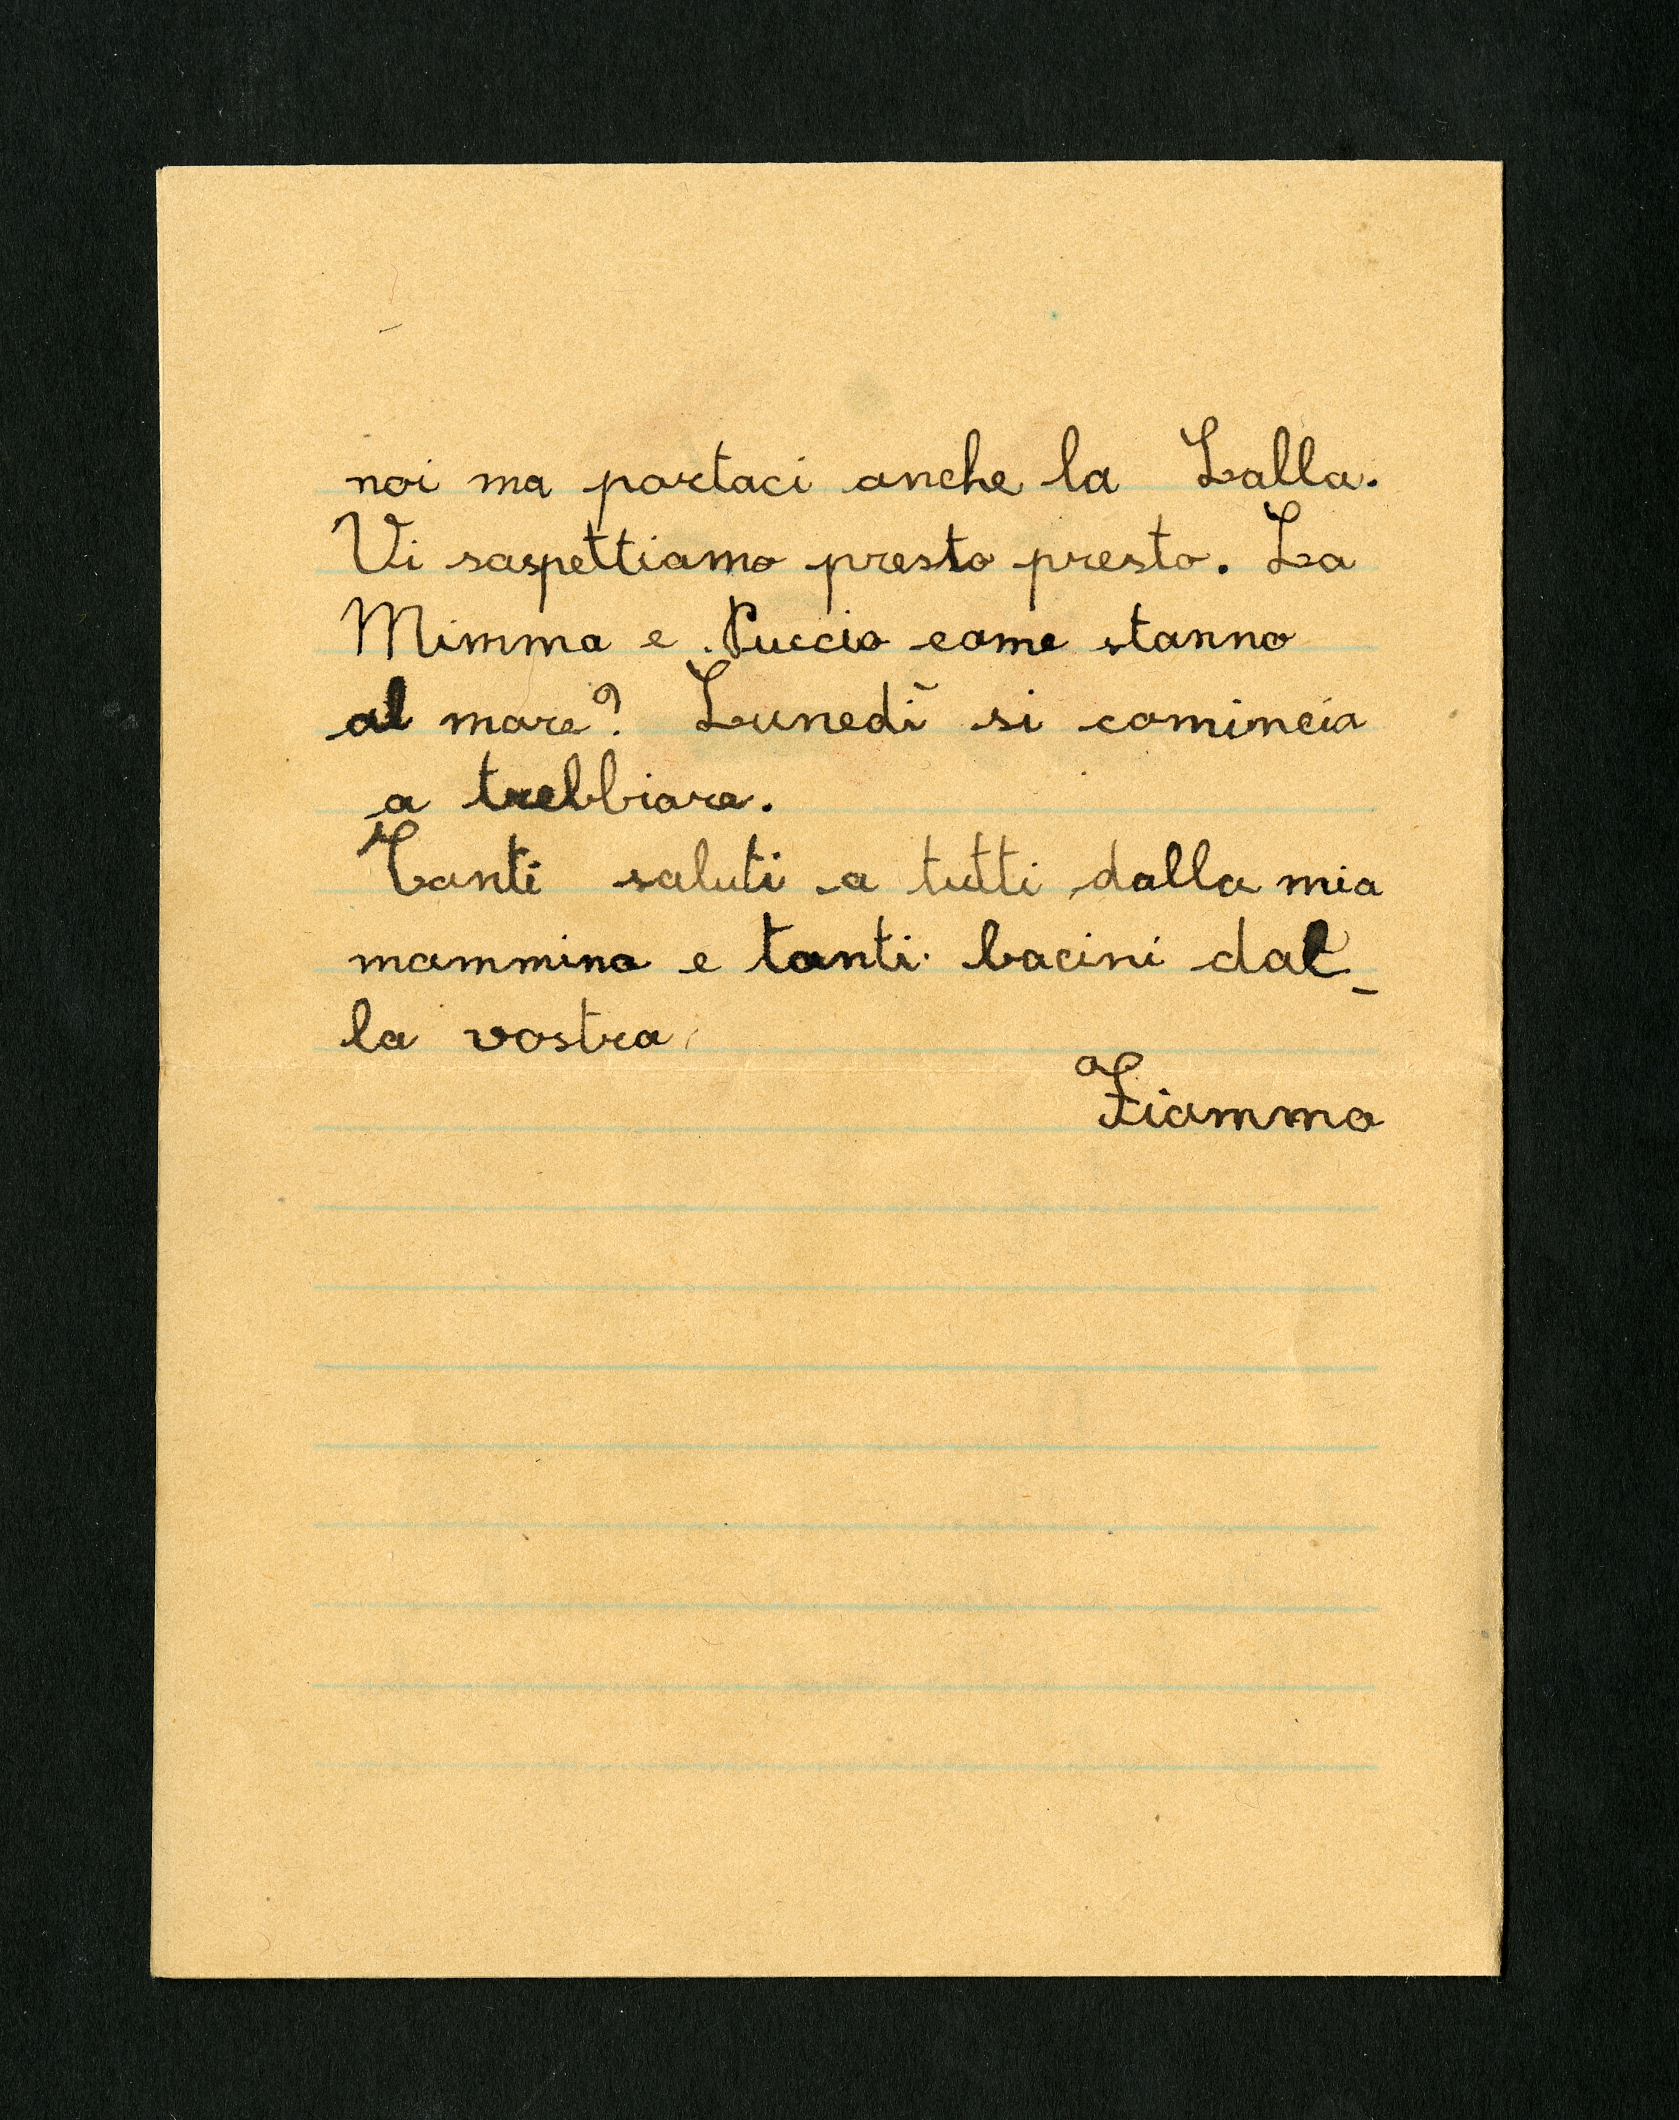 noi ma portaci anche la Lalla.
Vi saspettiamo presto presto. La
Mimma e Puccio come stanno
al mare? Lunedì si comincia
a trebbiare.
Tanti saluti a tutti dalla mia
mammina e tanti bacini dal-
la vostra
Fiamma